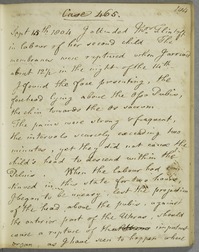 Case 465.
Sept 14th 1804 Attended Mrs
in labour of her second child. The
membranes were ruptured when I arrived
about 12½ in the night of the 14th
I found the face presenting, the
forehead lying above the Ossa Pubis,
the chin towards the os sacrum.
The pains were strong & frequent,
the intervals scarcely exceeding two
minutes, yet they did not cause the
child's head to descend within the
Pelvis. When the labour had con
tinued in this state for hours
I began to be uneasy, lest the projection
of the head above the pubis, against
the anterior part of the Uterus, should
cause a rupture of that
organ as I have seen to happen when